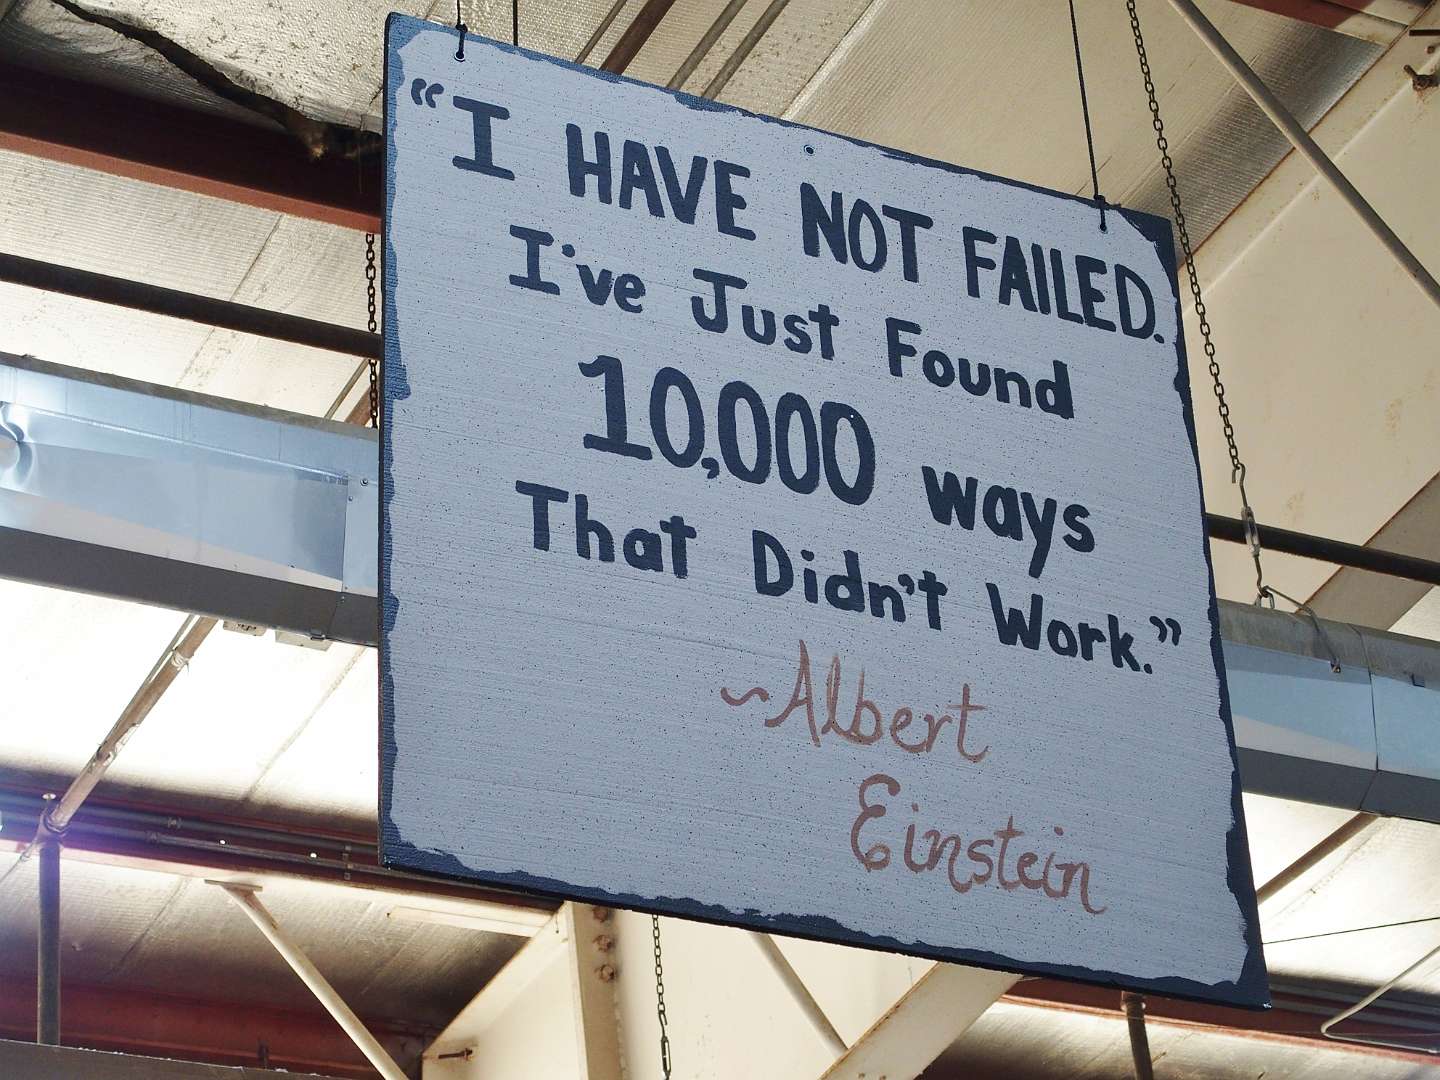 “I HAVE NOT FAILED.
I've Just Found
10,000 ways
That Didn't Work.”
~Albert
Einstein